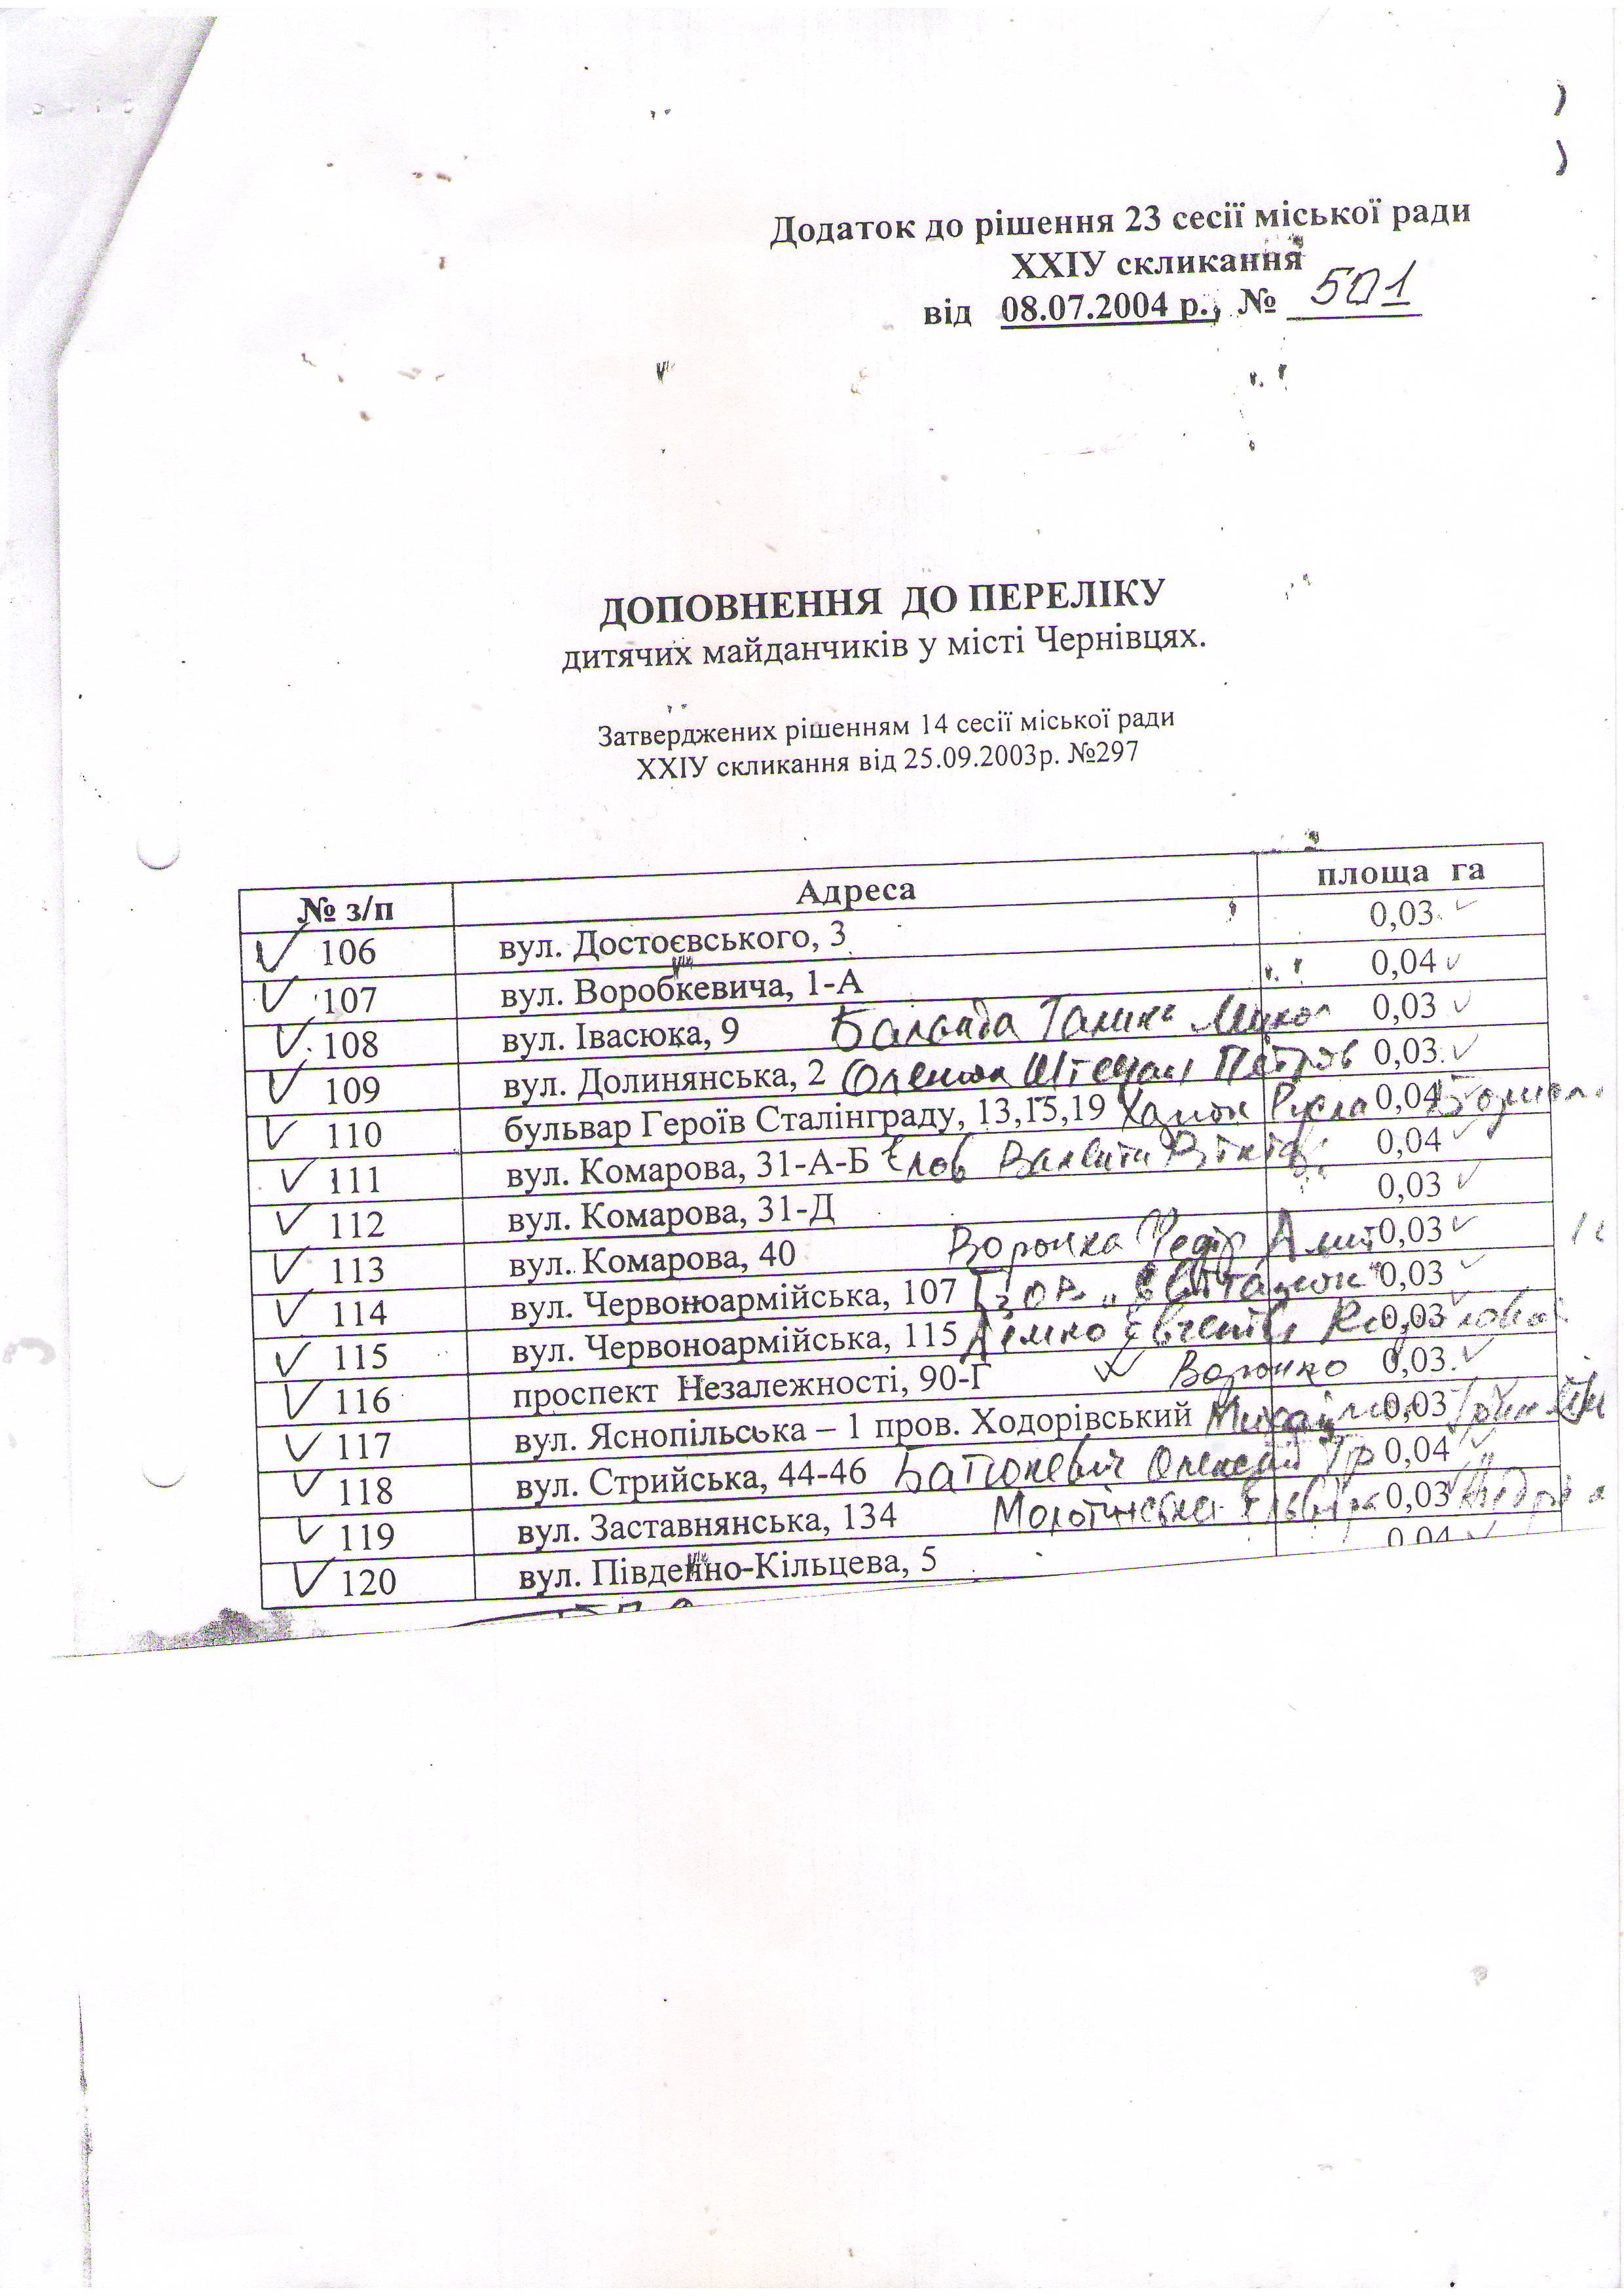 Додаток до рішення 23 сесії міської ради
ХХІУ скликання
від 08.07.2004 р., № 501
ДОПОВНЕННЯ ДО ПЕРЕЛІКУ
дитячих майданчиків у місті Чернівцях.
Затверджених рішенням 14 сесії міської ради
ХХІУ скликання від 25.09.2003р. №297
№ з/п Адреса площа га
106 вул. Достоєвського, 3 0,03
107 вул. Воробкевича, 1-А 0,04
108 вул. Івасюка, 9 Галина 0,03
109 вул. Долинянська, 2 Штефан Петров 0,03
110 бульвар Героїв Сталінграду, 13,15,19 0,04
111 вул. Комарова, 31-А-Б 0,04
112 вул. Комарова, 31-Д 0,03
113 вул. Комарова, 40 Воронка Федір 0,03
114 вул. Червоноармійська, 107 "Світанок" 0,03
115 вул. Червоноармійська, 115 0,03
116 проспект Незалежності, 90-Г Воронко 0,03
117 вул. Яснопільська – 1 пров. Ходорівський 0,03
118 вул. Стрийська, 44-46 Батюкевич 0,04
119 вул. Заставнянська, 134 0,03
120 вул. Південно-Кільцева, 5 0,04